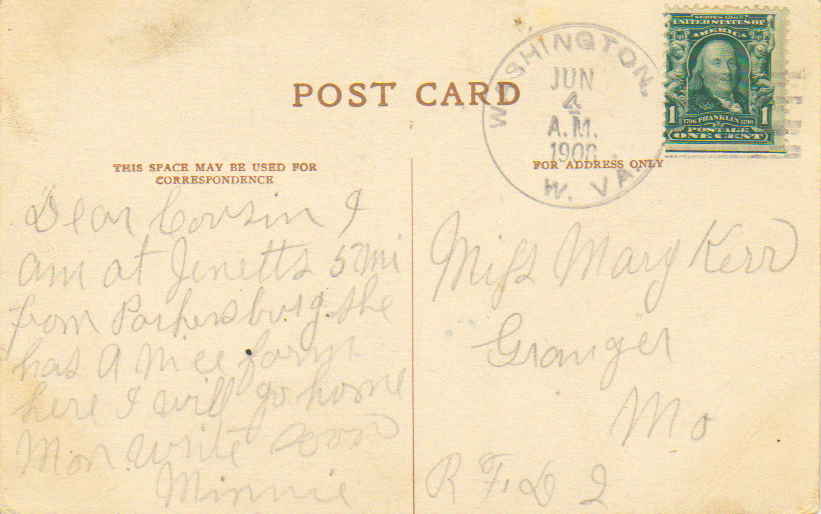 POST CARD
THIS SPACE MAY BE USED FOR
CORRESPONDENCE
Dear Cousin I
am at Jenetts 5 mi
from Parkersburg. She
has a nice farm
here I will go home
Mon write soon
Minnie
WASHINGTON,
JUN
4
A.M.
1908
W. VA.
SERIES 1902
UNITED STATES OF
AMERICA
1 1
1706 FRANKLIN 1790
POSTAGE
ONE CENT
FOR ADDRESS ONLY
Miss Mary Kerr
Granger
Mo
R F. D 2